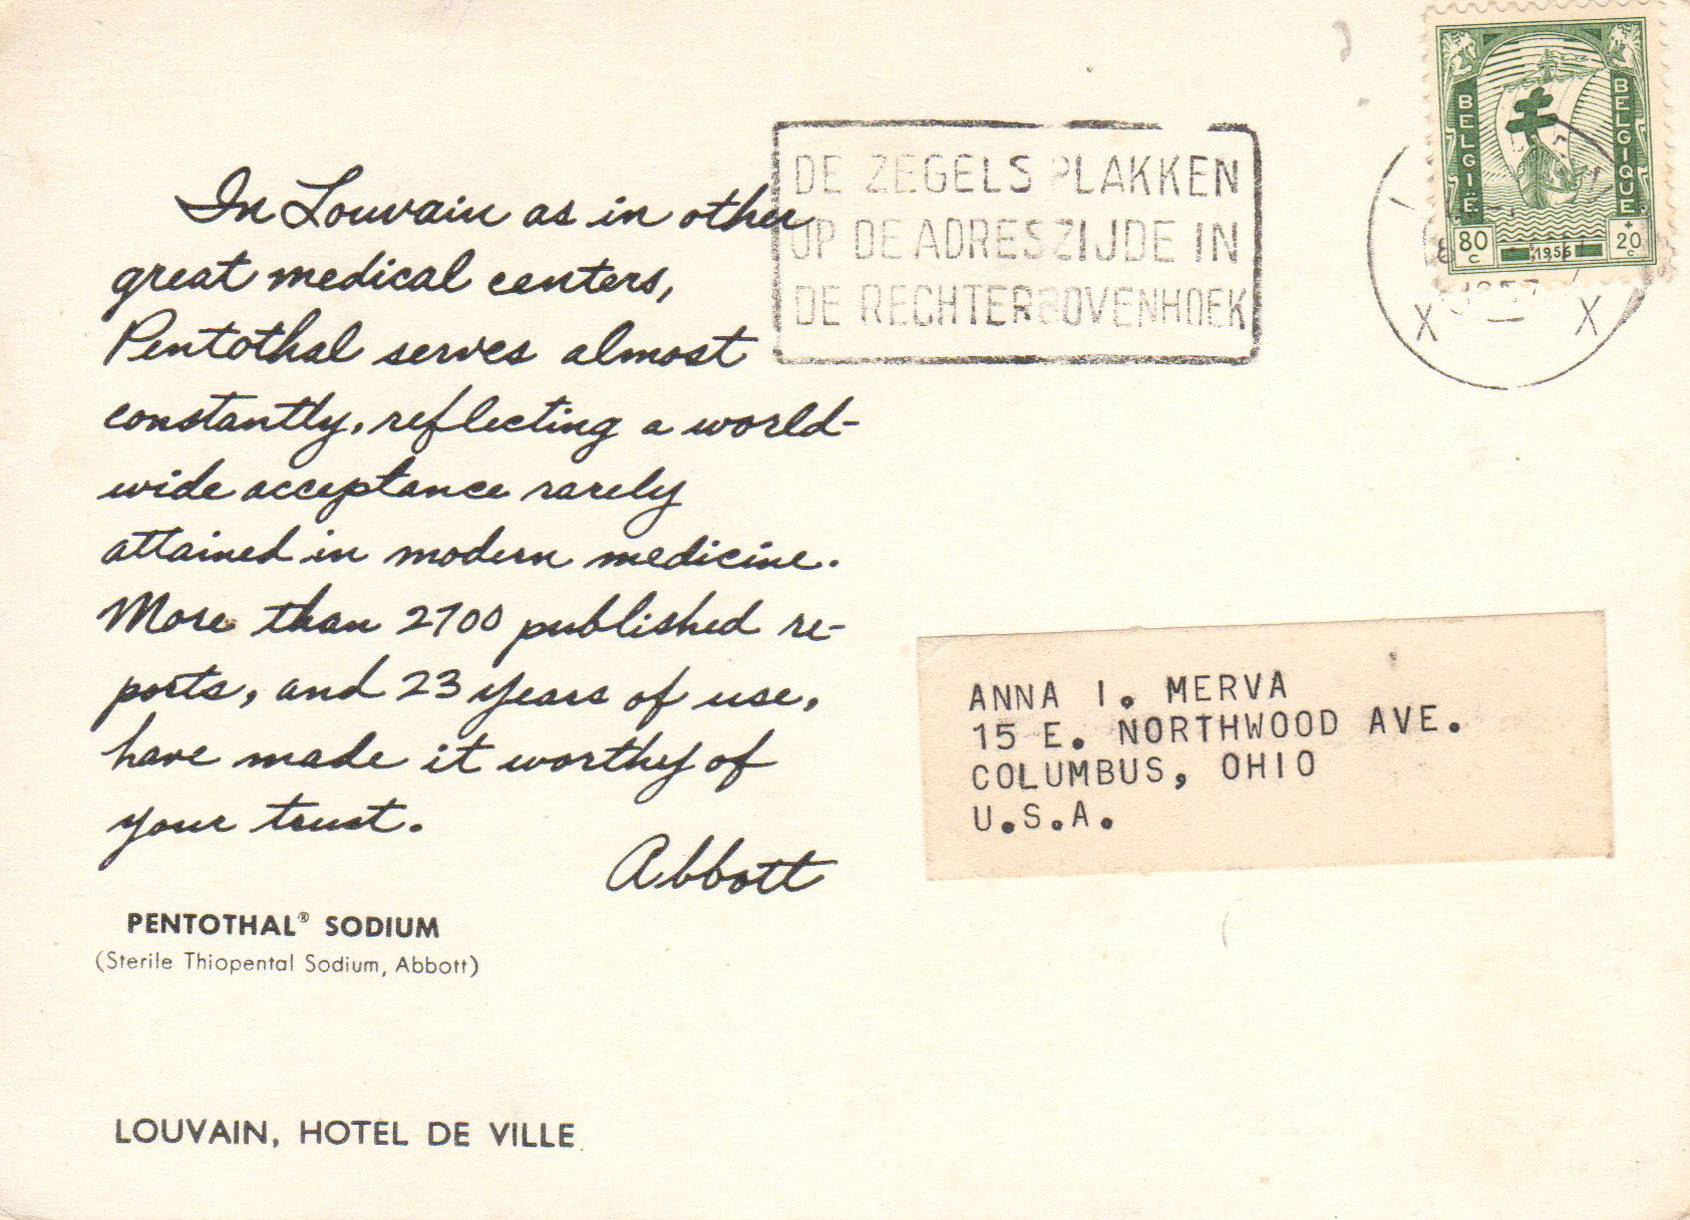 In Louvain as in other
great medical centers,
Pentothal serves almost
constantly, reflecting a world-
wide acceptance rarely
attained in modern medicine.
More than 2700 published re-
ports, and 23 years of use,
have made it worthy of
your trust.
Abbott
PENTOTHAL® SODIUM
(Sterile Thiopental Sodium, Abbott)
LOUVAIN, HOTEL DE VILLE
DE ZEGELS PLAKKEN
OP DE ADRESZIJDE IN
DE RECHTERBOVENHOEK
BELGIË
BELGIQUE
80 c
1956
+20 c
1957
X X
ANNA I. MERVA
15 E. NORTHWOOD AVE.
COLUMBUS, OHIO
U.S.A.